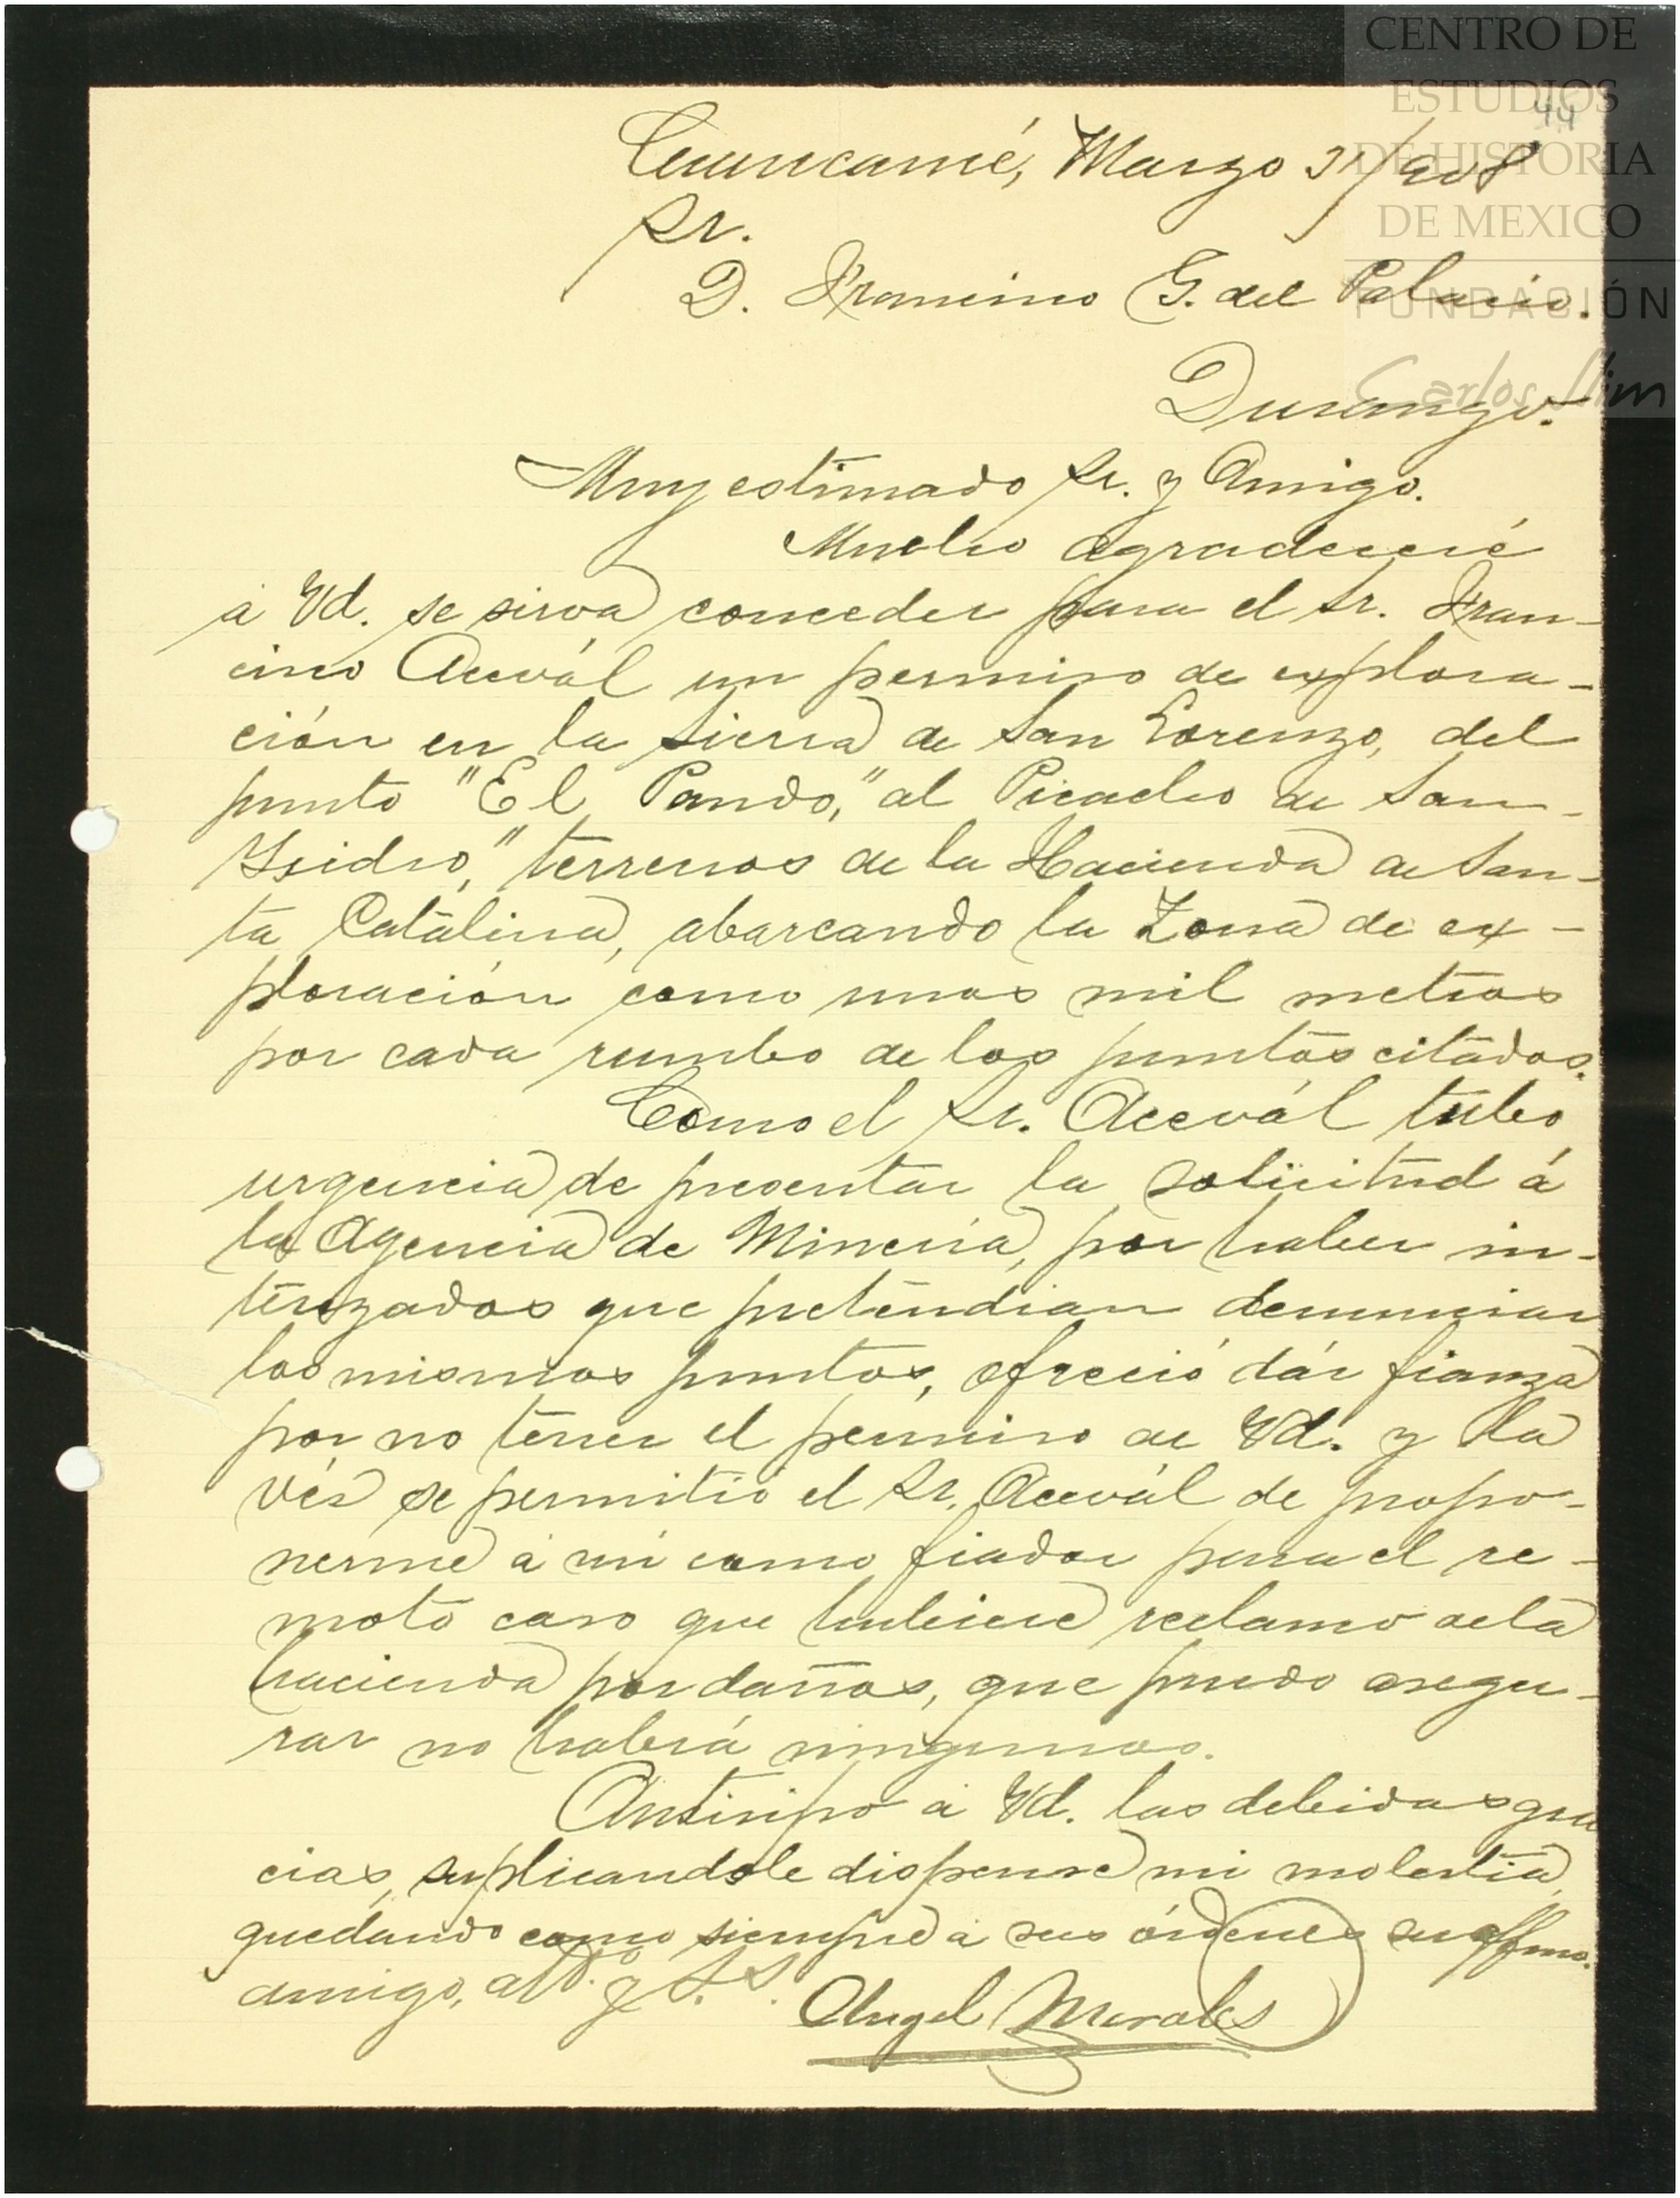 CENTRO DE
ESTUDIOS
DE HISTORIA
DE MEXICO
FUNDACIÓN
Carlos Slim
44
Cuencamé, Marzo 31/908
Sr.
D. Francisco G. del Palacio.
Durango.
Muy estimado Sr. y Amigo.
Mucho agradeceré
á Vd. se sirva conceder para el Sr. Fran-
cisco Acevál un permiso de explora-
ción en la Sierra de San Lorenzo, del
punto "El Pando," al Picacho de San-
Isidro," terrenos de la Hacienda de San-
ta Catalina, abarcando la Zona de ex-
ploración como unos mil metros
por cada rumbo de los puntos citados.
Como el Sr. Acevál tubo
urgencia de presentar la solicitud á
la Agencia de Minería, por haber in-
terezados que pretendian denunciar
los mismos puntos, ofreció dár fianza
por no tener el permiso de Vd. y á la
vés se permitió el Sr. Acevál de propo-
nerme á mi como fiador para el re-
moto caso que hubiere reclamo de la
hacienda por daños, que puedo asegu-
rar no habrá ningunos.
Antisipo á Vd. las debidas gra
cias, suplicandole dispense mi molestia,
quedando como siempre á sus órdenes su affmo.
amigo, atto. y S. S.
Angel Morales